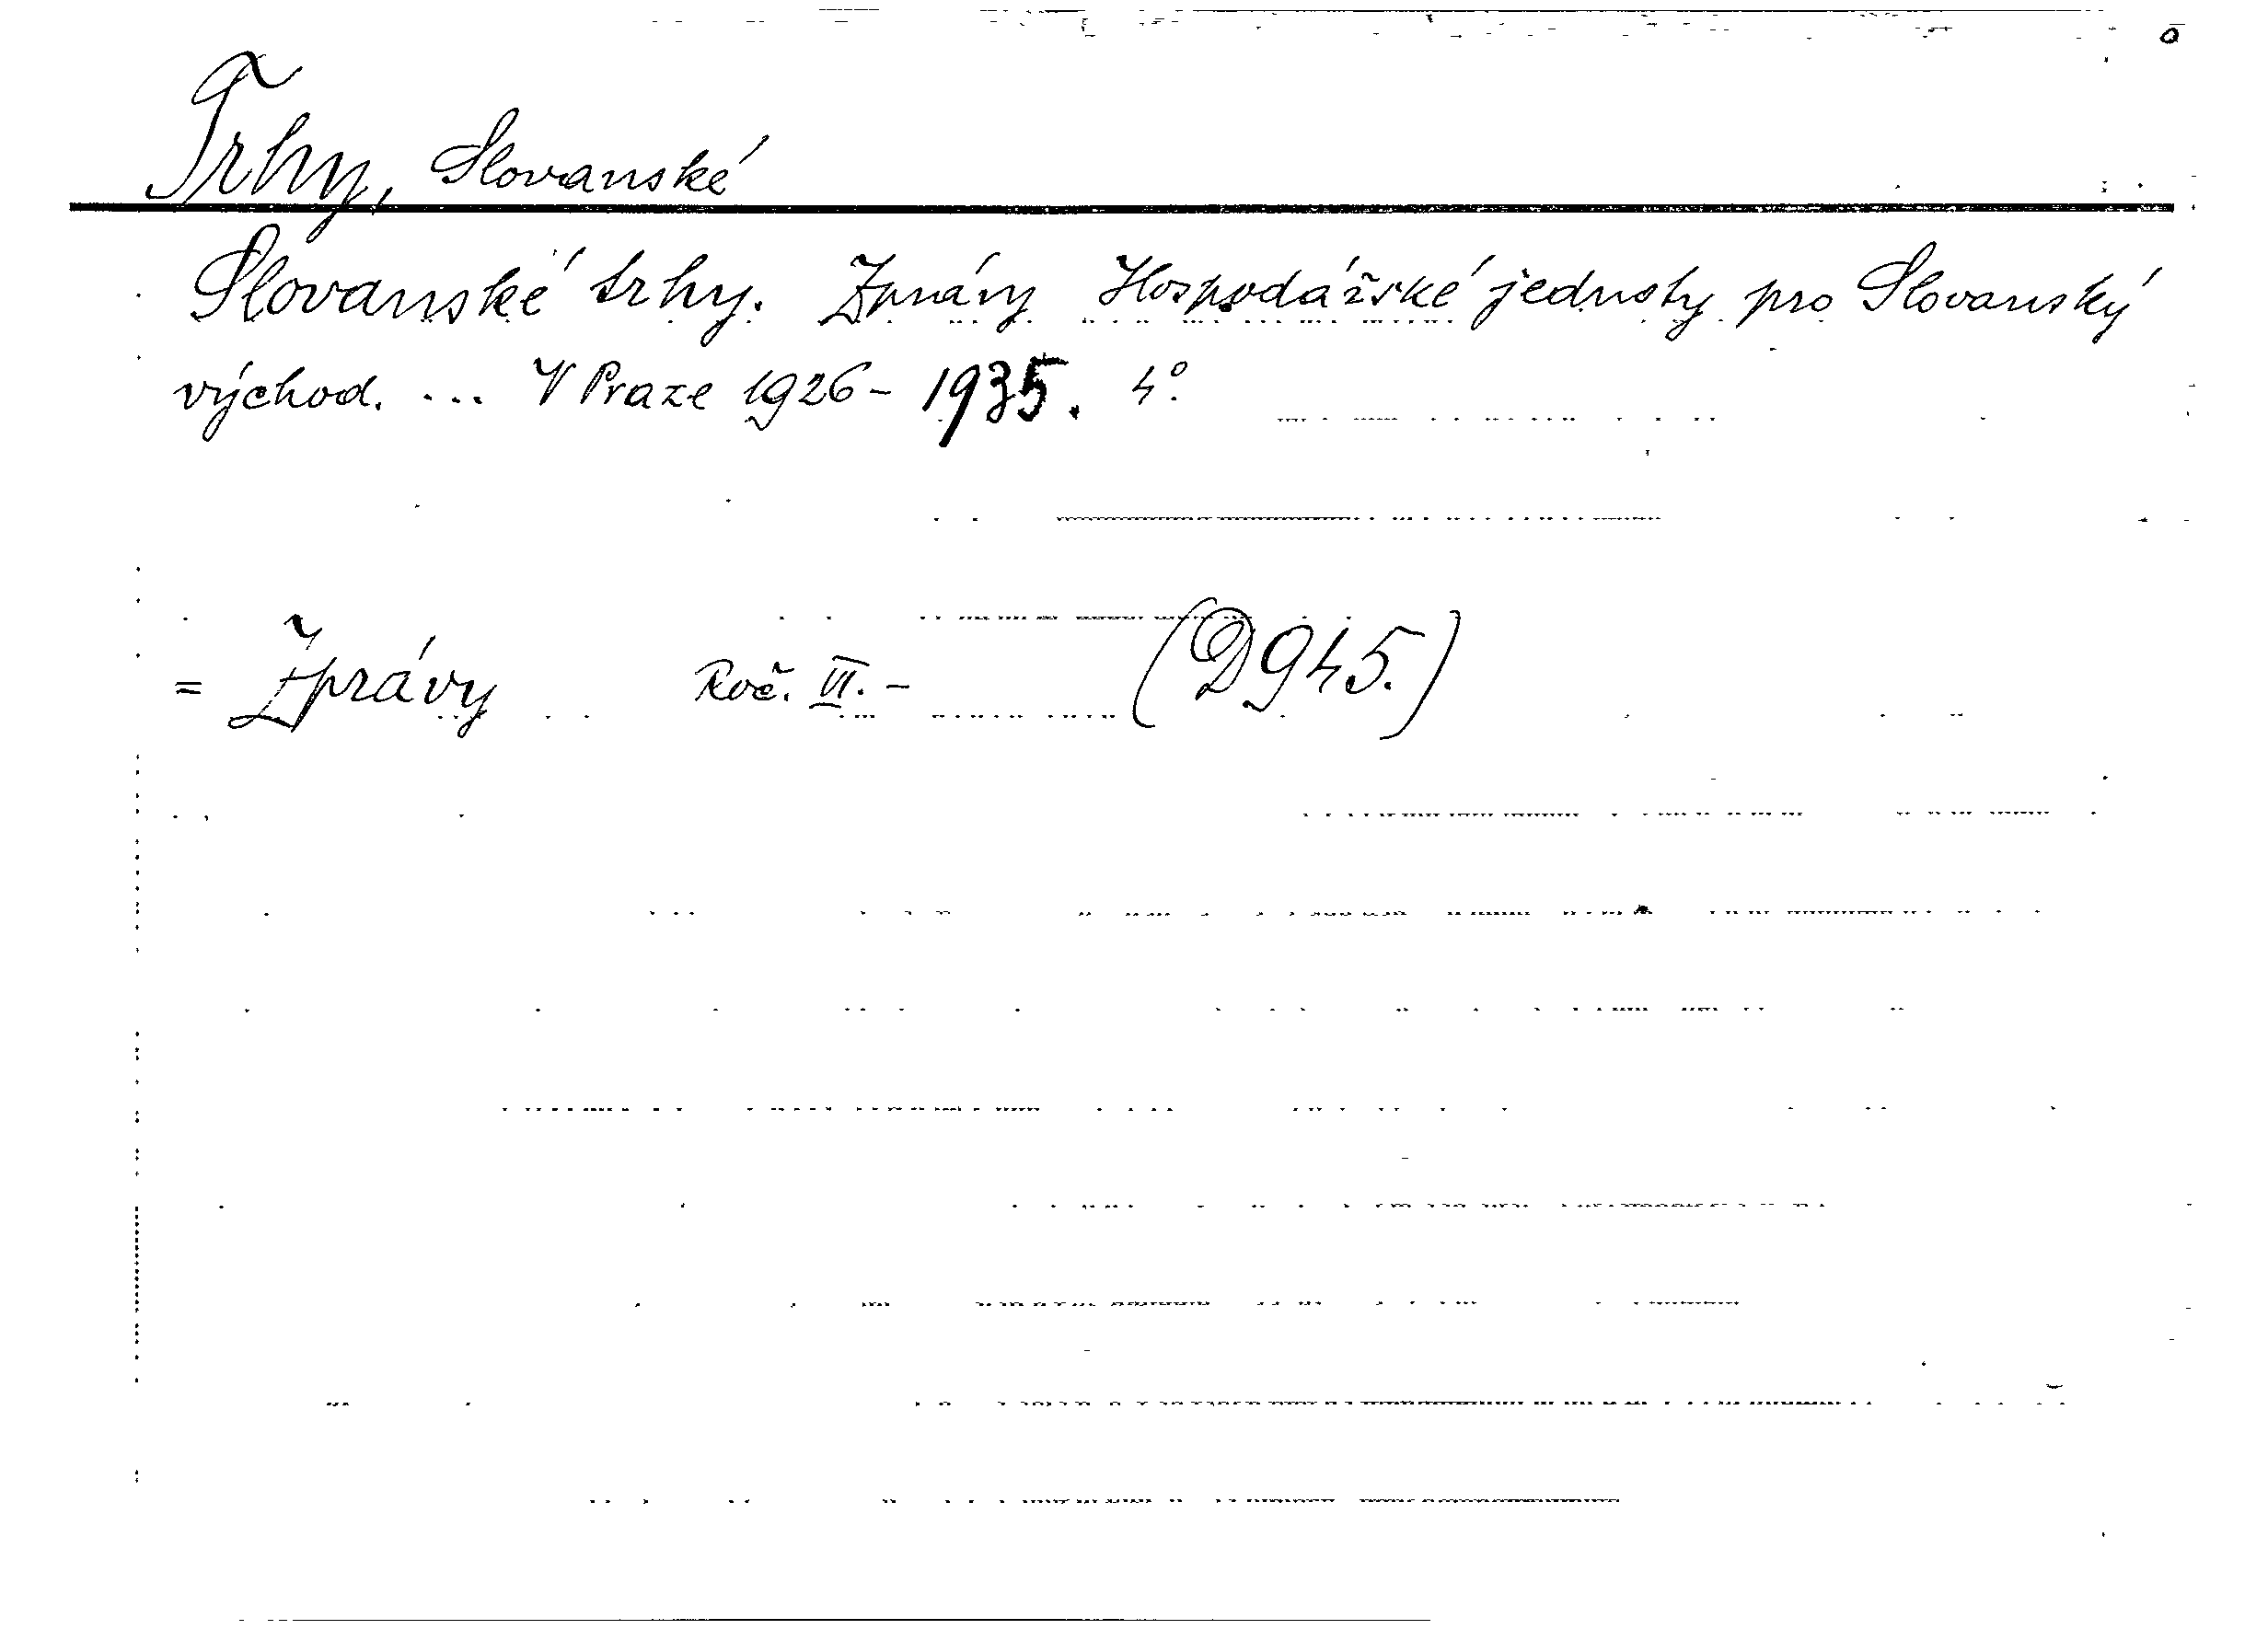 Trhy, Slovanské
Slovanské trhy. Zprávy Hospodářské jednoty pro Slovanský
východ. ... V Praze 1926 - 1935. 4°.
= Zprávy Roč. VI. - (D945.)